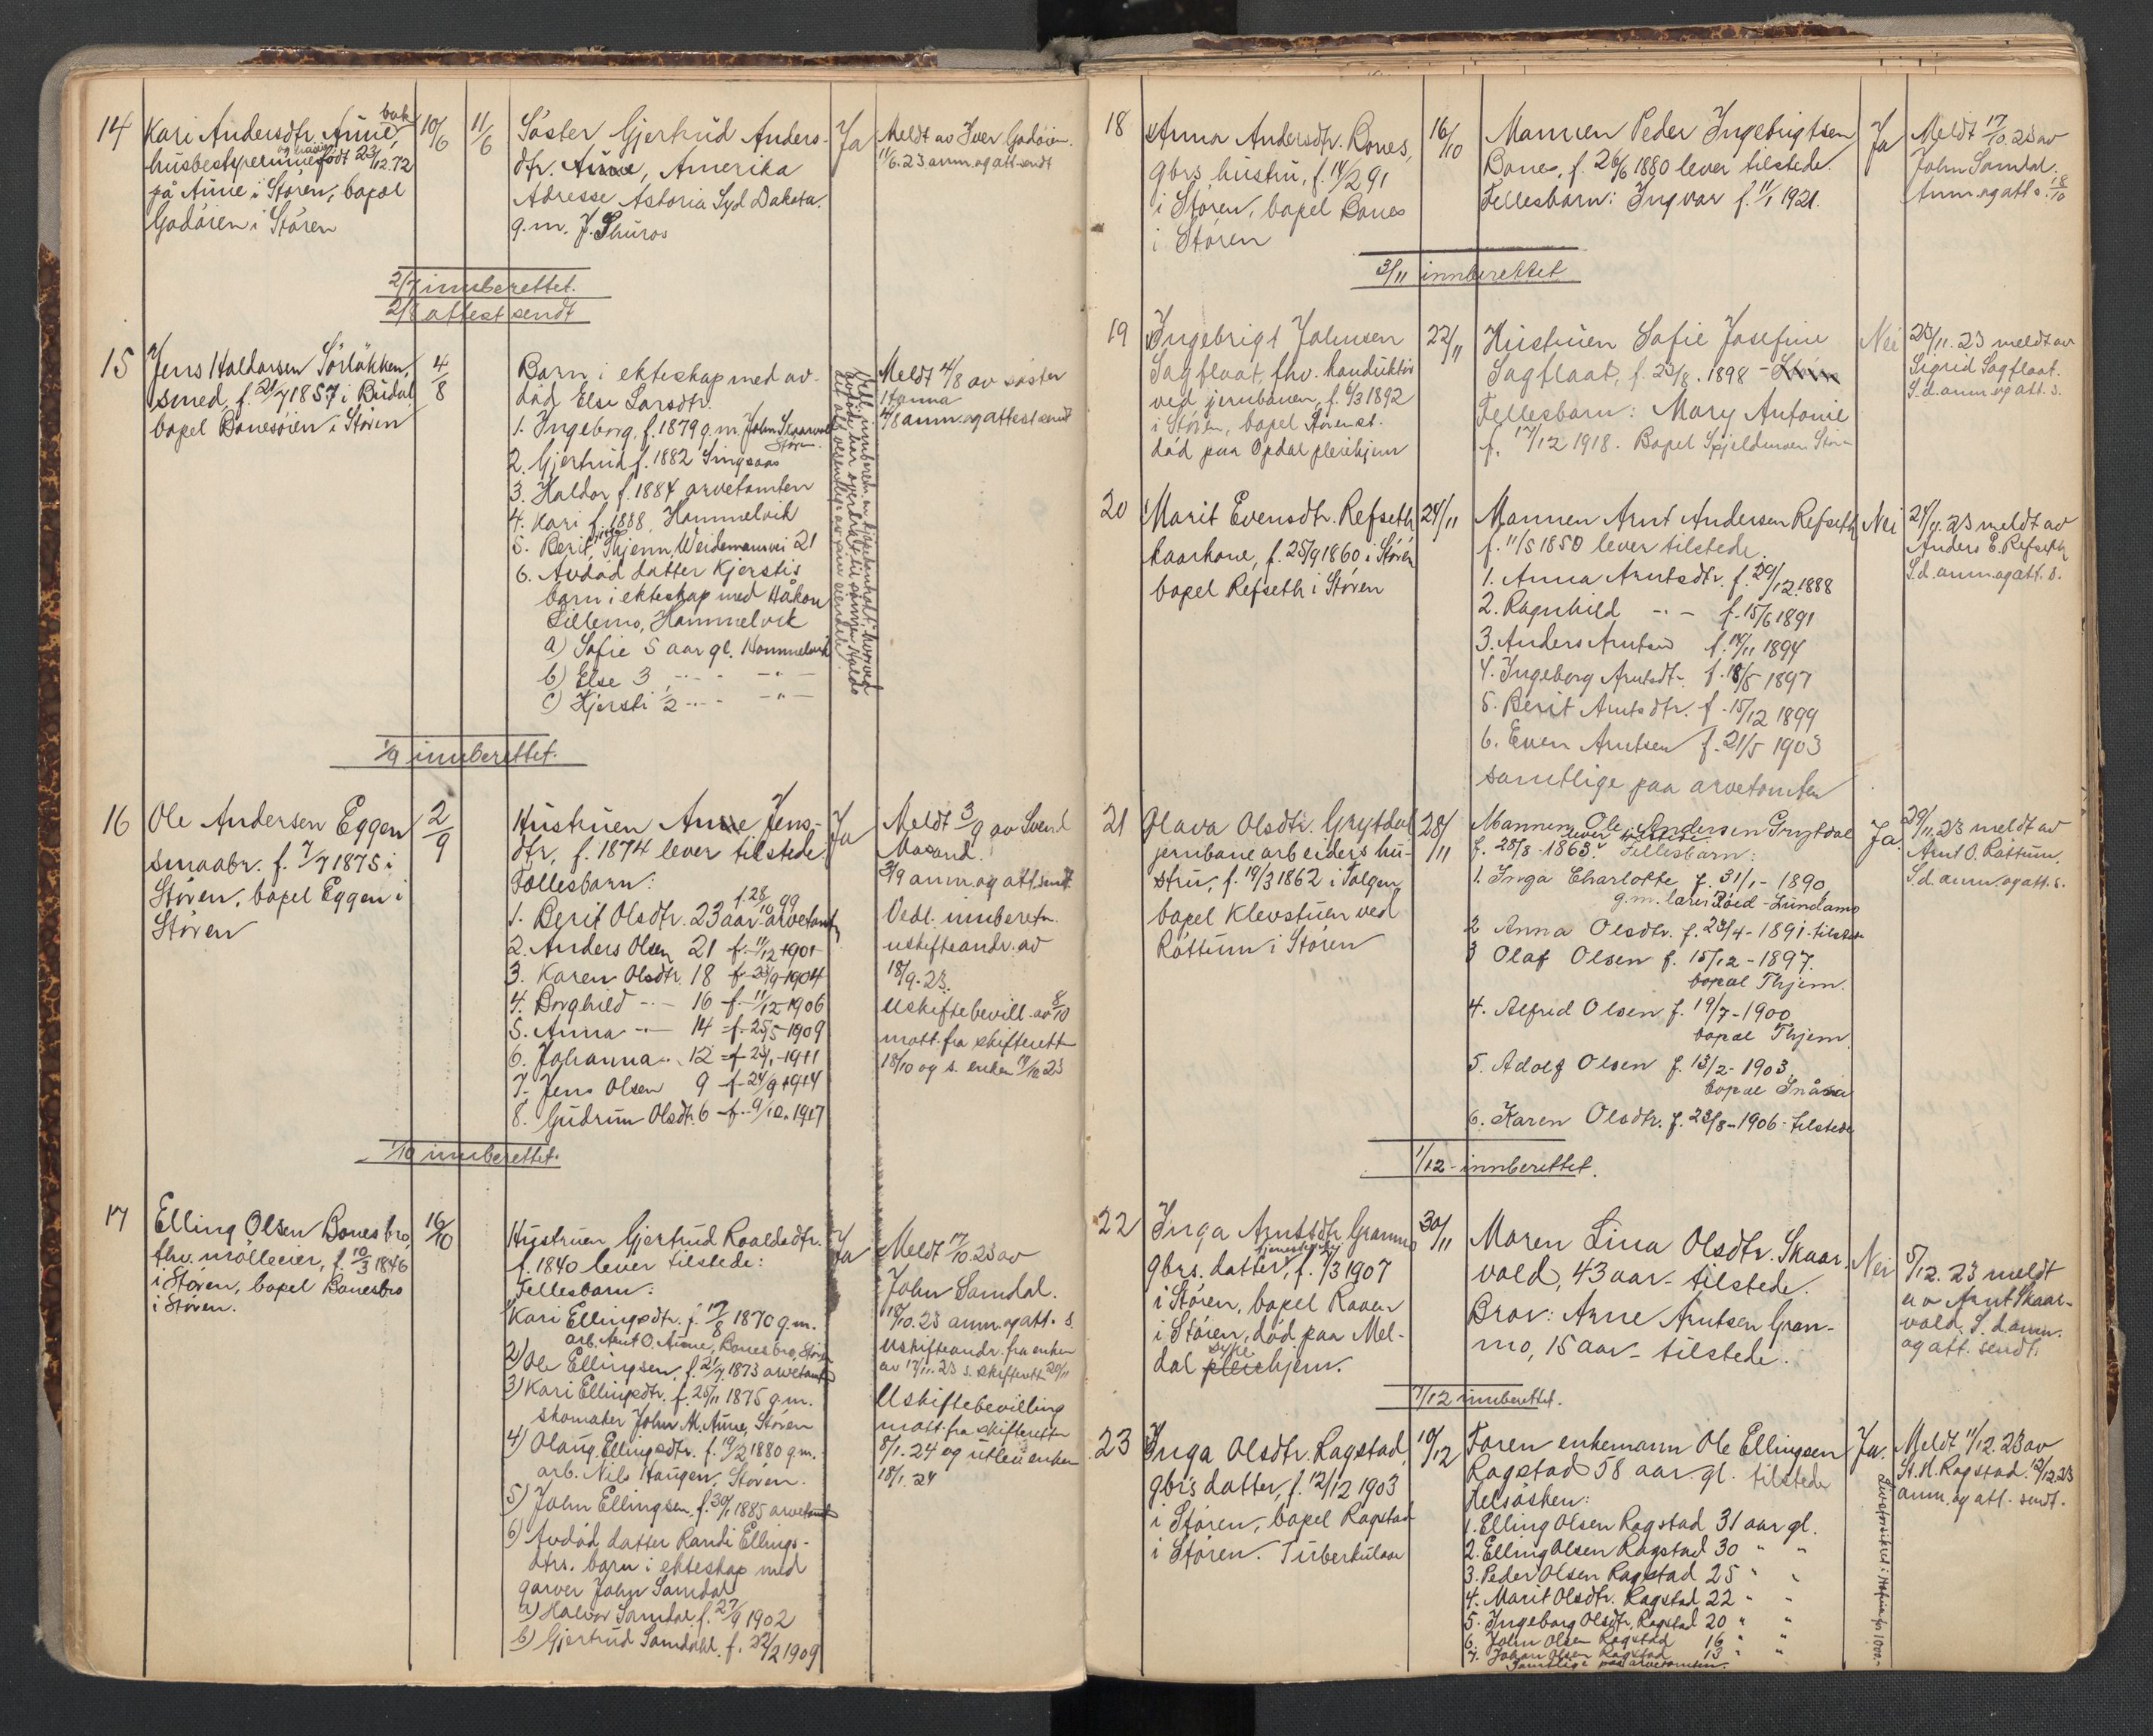 14 Kari Andersdtr. Aune, bak 10/6 11/6 Söster Gjertrud Anders- Ja Meldt av Iver Godöien.
født 23/12.72 dtr. Aune, Amerika 11/6.23 anm. og att. sendt
på Aune i Stören, bopæl Adresse Astoria Syd Dakota.
Godöien i Stören g.m. J.
2/7 innberettet.
2/8 attest sendt
15 Jens Haldorsen Sörløkken, 4/8 Barn i ekteskap med av- Meldt 4/8 av söster
smed, f. 21/7 1857 i Budal död Else Larsdtr. Hanna
bopel Bonesöien i Stören 1. Ingeborg, f. 1879 g.m. John Skaarvold 4/8 anm. og attest sendt
Stören.
2. Gjertrud f. 1882 Singsaas
3. Haldor f. 1884 arvetomten
4. Kari f. 1888, Hommelvik
5. Berit, Thjem, Weidemannsvei 21
6. Avdöd datter Kjerstis
barn i ekteskap med Håkon
Lillemo, Hommelvik
a) Sofie 5 aar gl. Hommelvik
b) Else 3 -"- -"-
c) Kjersti 1/2 -"- -"-
1/9 innberettet.
16 Ole Andersen Eggen 2/9 Hustruen Anne Jens- Ja Meldt 3/9 av Svend
smaabr. f. 7/7 1875 i dtr, f. 1874 lever tilstede. Moxand.
Stören, bopel Eggen i Fællesbarn: 3/9 anm. og att. sendt
Stören f. 28/10 99
1. Berit Olsdtr. 23 aar arvetomten Vedl. innberetn.
2. Anders Olsen 21 f. 11/12 1901 uskifteandr. av
3. Karen Olsdtr. 18 f. 23/9 1904 18/9.23.
4. Borghild -"- 16 f. 11/12 1906 Uskiftebevill. av 8/10
5. Anna -"- 14 f. 25/5 1909 mott. fra skifterett
6. Johanna -"- 12 f. 23/1 1911 18/10 og s. enken 19/10 23
7. Jens Olsen 9 f. 24/9 1914
8. Gudrun Olsdtr. 6 f. 9/10.1917
1/10 innberettet.
17 Elling Olsen Bonesbro, 16/10 Hustruen Gjertrud Roaldsdtr. Ja Meldt 17/10.23 av
fhv. möller, f. 10/3 1846 f. 1840 lever tilstede: John Samdal.
i Stören, bopel Bonesbro Fellesbarn: 18/10.23 anm. og att. s.
i Stören. 1) Kari Ellingsdtr. f. 17/8 1870 g.m. Uskifteandr. fra enken
arb. Arnt O. Aune, Bonesbro, Stören av 17/11.23 s. skifterett 20/11
2) Ole Ellingsen, f. 21/7 1873 arvetomten Uskiftebevilling
3) Kari Ellingsdtr. f. 25/11 1875 g.m. mott. fra skifteretten
skomaker John M. Aune, Stören 8/1.24 og utlev. enken
4) Olaug Ellingsdtr. f. 19/2 1880 g.m. 18/1.24
arb. Nils Haugen, Stören.
5) John Ellingsen, f. 30/1 1885 arvetomt
6) Avdöd datter Randi Ellings-
dtrs. barn i ekteskap med
garver John Samdal
a) Halvor Samdal f. 27/9 1902
b) Gjertrud Samdahl f. 22/2 1909
18 Anna Andersdtr. Bones, 16/10 Mannen Peder Ingebrigtsen Ja Meldt 17/10.23 av
gbrs. hustru, f. 14/2 91 Bones, f. 26/6 1880 lever tilstede. John Samdal.
i Stören, bopel Bones Fellesbarn: Ingvar f. 11/1 1921. Anm. og att. s. 18/10
i Stören
3/11 innberettet
19 Ingebrigt Johnsen 22/11 Hustruen Sofie Josefine Nei 23/11.23 meldt av
Sagflaat, fhv. konduktör Sagflaat, f. 23/8.1898 Sigrid Sagflaat.
ved jernbanen, f. 6/3 1892 Fellesbarn: Mary Antonie S.d. anm. og att. s.
i Stören, bopel Stören st. f. 17/12 1918. Bopel
död paa Opdal pleiehjem
20 Marit Evensdtr. Refseth 24/11 Mannen Arnt Andersen Refseth Nei 24/11.23 meldt av
kaarkone, f. 25/9 1860 i Stören f. 11/5 1850 lever tilstede. Anders E. Refseth
bopel Refseth i Stören 1. Anna Arntsdtr. f. 29/12.1888 S.d. anm. og att. s.
2. Ragnhild -"- f. 15/6 1891
3. Anders Arntsen f. 14/11 1894
4. Ingeborg Arntsdtr. f. 18/5 1897
5. Berit Arntsdtr. f. 15/12 1899
6. Even Arntsen f. 21/5 1903
samtlige paa arvetomten
21 Olava Olsdtr. Grytdal 28/11 Mannen Ole Andersen Grytdal Ja. 29/11.23 meldt av
jernbanearbeiders hu- f. 28/8-1863 lever tilstede. Fellesbarn: Arnt O. Rottum.
stru, f. 19/3 1862 i Tolgen 1. Inga Charlotte f. 31/1-1890, S.d. anm. og att. s.
bopel Klevstuen ved g.m. lærer Röed - Lundamo
Rottum i Stören 2 Anna Olsdtr. f. 23/4-1891-tilstede
3 Olaf Olsen f. 15/12-1897.
bopæl Thjem.
4. Alfred Olsen f. 19/7-1900
bopæl Thjem.
5. Adolf Olsen f. 13/2-1903
bopæl Snåsa
6. Karen Olsdtr. f. 23/8-1906-tilstede
1/12-innberettet.
22 Inga Arntsdtr. Granmo 30/11 Moren Lina Olsdtr. Skaar- Nei 5/12.23 meldt
gbrs. datter, f. 1/3 1907 vold, 43 aar - tilstede. av Arnt Skaar-
i Stören, bopel Raaen Bror: Arne Arntsen Gran- vold. S.d. anm.
i Stören, död paa Mel- mo, 15 aar - tilstede. og att. sendt.
dal pleie syke hjem.
7/12 innberettet.
23 Inga Olsdtr. Ragstad, 10/12 Faren enkemann Ole Ellingsen Ja. Meldt 11/12.23 av
gbrs datter, f. 12/12 1903 Rogstad 58 aar gl. tilstede St. H. Rogstad. 12/12.23
i Stören, bopel Rogstad Helsösken: anm. og att. sendt.
i Stören. Tuberkulose 1. Elling Olsen Rogstad 31 aar gl.
2. Elling Olsen Rogstad 30 " "
3. Peder Olsen Rogstad 25 " "
4. Marit Olsdtr. Rogstad 22 " "
5. Ingeborg Olsdtr. Rogstad 20 " "
6. John Olsen Rogstad 16 " "
7. Johan Olsen Rogstad 13 " "
Samtlige paa arvetomten.
Livsforsikret i Hafnia for 1000.-